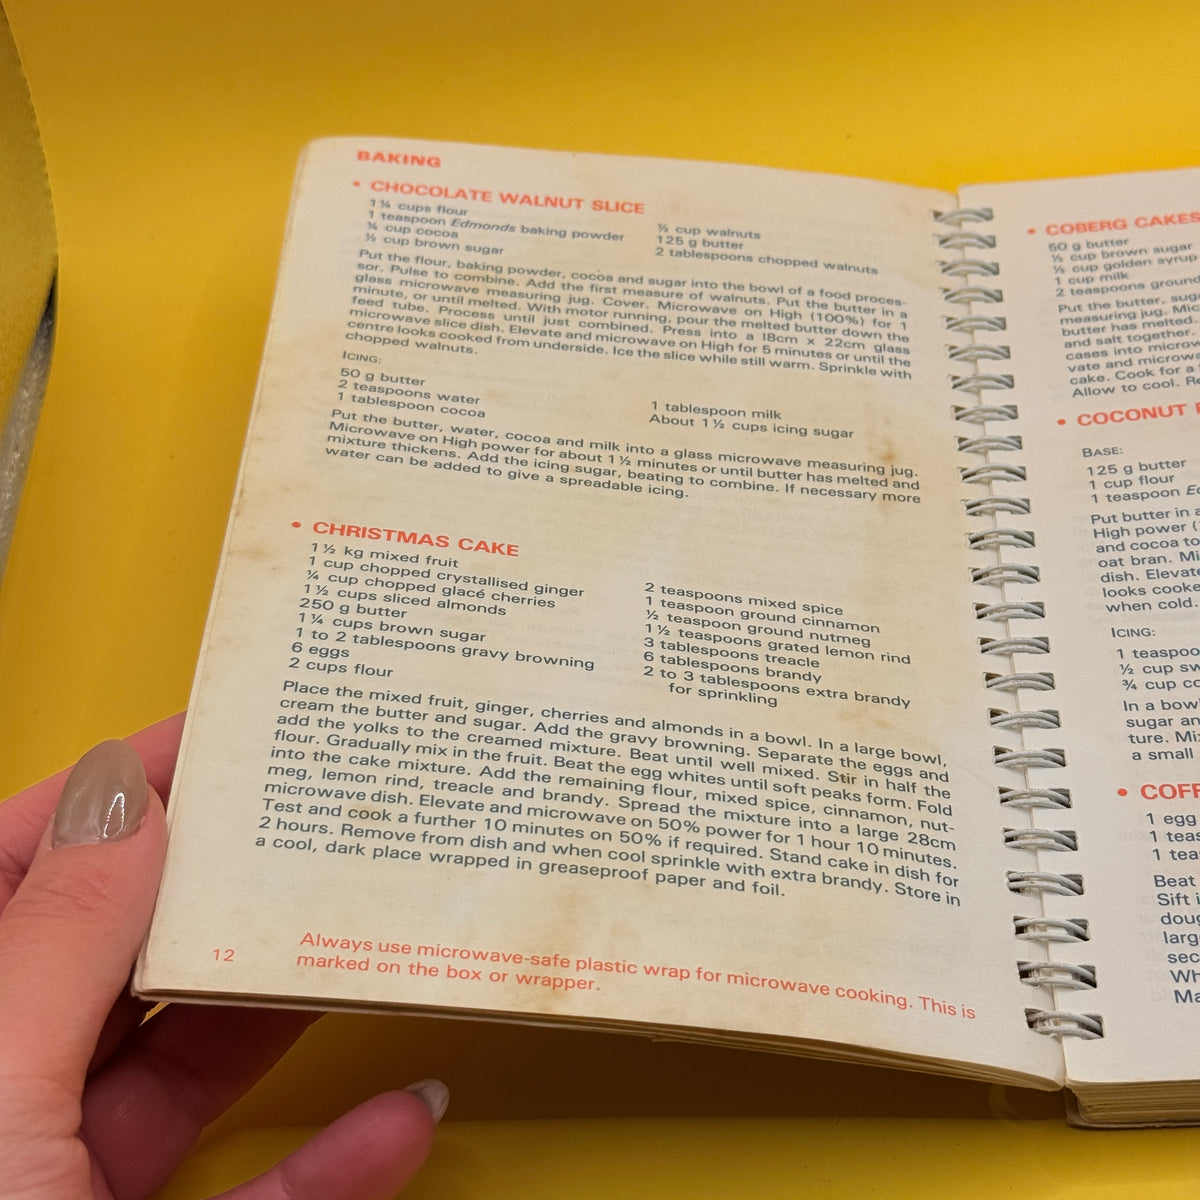 BAKING
• CHOCOLATE WALNUT SLICE
1¼ cups flour
1 teaspoon Edmonds baking powder
¼ cup cocoa
½ cup brown sugar
½ cup walnuts
125 g butter
2 tablespoons chopped walnuts
Put the flour, baking powder, cocoa and sugar into the bowl of a food proces-
sor. Pulse to combine. Add the first measure of walnuts. Put the butter in a
glass microwave measuring jug. Cover. Microwave on High (100%) for 1
minute, or until melted. With motor running, pour the melted butter down the
feed tube. Process until just combined. Press into a 18cm × 22cm glass
microwave slice dish. Elevate and microwave on High for 5 minutes or until the
centre looks cooked from underside. Ice the slice while still warm. Sprinkle with
chopped walnuts.
ICING:
50 g butter
2 teaspoons water
1 tablespoon cocoa
1 tablespoon milk
About 1½ cups icing sugar
Put the butter, water, cocoa and milk into a glass microwave measuring jug.
Microwave on High power for about 1½ minutes or until butter has melted and
mixture thickens. Add the icing sugar, beating to combine. If necessary more
water can be added to give a spreadable icing.
• CHRISTMAS CAKE
1½ kg mixed fruit
1 cup chopped crystallised ginger
¼ cup chopped glacé cherries
1½ cups sliced almonds
250 g butter
1¼ cups brown sugar
1 to 2 tablespoons gravy browning
6 eggs
2 cups flour
2 teaspoons mixed spice
1 teaspoon ground cinnamon
½ teaspoon ground nutmeg
1½ teaspoons grated lemon rind
3 tablespoons treacle
6 tablespoons brandy
2 to 3 tablespoons extra brandy
for sprinkling
Place the mixed fruit, ginger, cherries and almonds in a bowl. In a large bowl,
cream the butter and sugar. Add the gravy browning. Separate the eggs and
add the yolks to the creamed mixture. Beat until well mixed. Stir in half the
flour. Gradually mix in the fruit. Beat the egg whites until soft peaks form. Fold
into the cake mixture. Add the remaining flour, mixed spice, cinnamon, nut-
meg, lemon rind, treacle and brandy. Spread the mixture into a large 28cm
microwave dish. Elevate and microwave on 50% power for 1 hour 10 minutes.
Test and cook a further 10 minutes on 50% if required. Stand cake in dish for
2 hours. Remove from dish and when cool sprinkle with extra brandy. Store in
a cool, dark place wrapped in greaseproof paper and foil.
12
Always use microwave-safe plastic wrap for microwave cooking. This is
marked on the box or wrapper.
• COBERG CAKES
50 g butter
½ cup brown sugar
½ cup golden syrup
1 cup milk
2 teaspoons ground
Put the butter, sug
measuring jug. Mic
butter has melted.
and salt together.
cases into microw
vate and microwa
cake. Cook for a
Allow to cool. R
• COCONUT
BASE:
125 g butter
1 cup flour
1 teaspoon Ed
Put butter in a
High power (
and cocoa to
oat bran. Mi
dish. Elevate
looks cooke
when cold.
ICING:
1 teaspoo
½ cup sw
¾ cup co
In a bow
sugar an
ture. Mi
a small
• COFF
1 egg
1 teas
1 tea
Beat
Sift i
doug
larg
sec
Wh
Ma